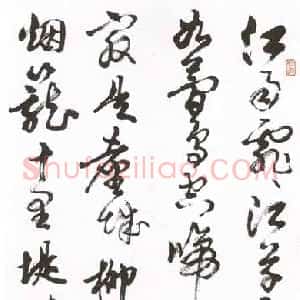 江雨霏霏江草
如梦鸟空啼
最是台城柳
烟笼十里堤
Shufaziliao.com